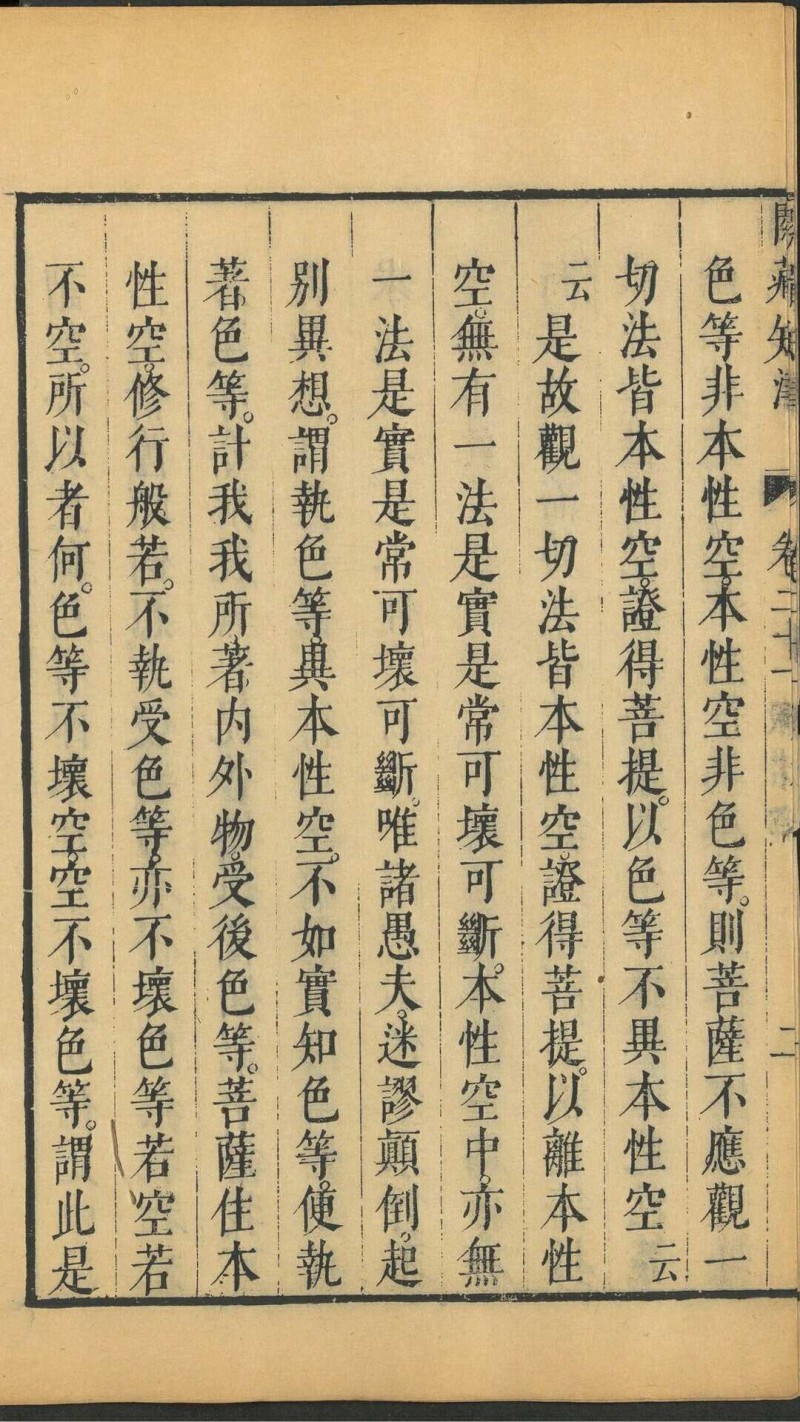 閱藏知津 卷二十一 二
色等非本性空。本性空非色等。則菩薩不應觀一
切法皆本性空。證得菩提。以色等不異本性空云
云是故觀一切法皆本性空。證得菩提。以離本性
空。無有一法是實是常可壞可斷。本性空中。亦無
一法是實是常可壞可斷。唯諸愚夫。迷謬顛倒。起
別異想。謂執色等。異本性空。不如實知色等。便執
著色等。計我我所。著內外物。受後色等。菩薩住本
性空。修行般若。不執受色等。亦不壞色等若空若
不空。所以者何。色等不壞空。空不壞色等。謂此是